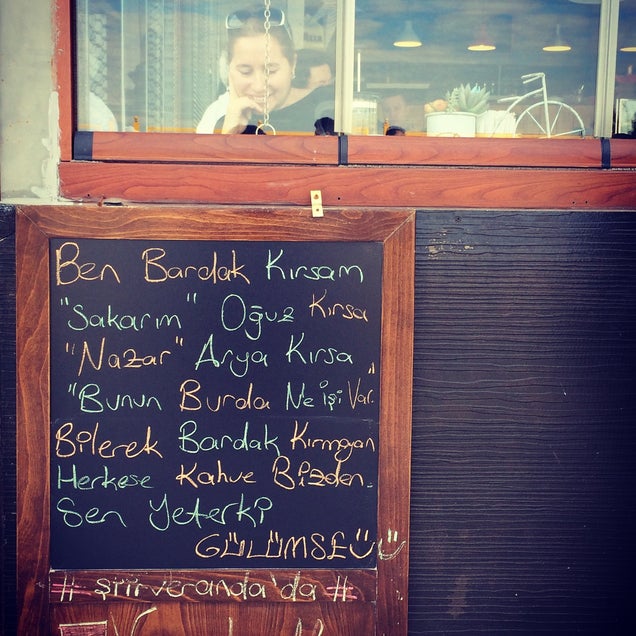 Ben Bardak Kırsam
"Sakarım" Oğuz Kırsa
"Nazar" Arya Kırsa
"Bunun Burda Ne işi Var."
Bilerek Bardak Kırmayan
Herkese Kahve Bizden.
Sen Yeterki
GÜLÜMSEÜ
# şiirveranda'da #